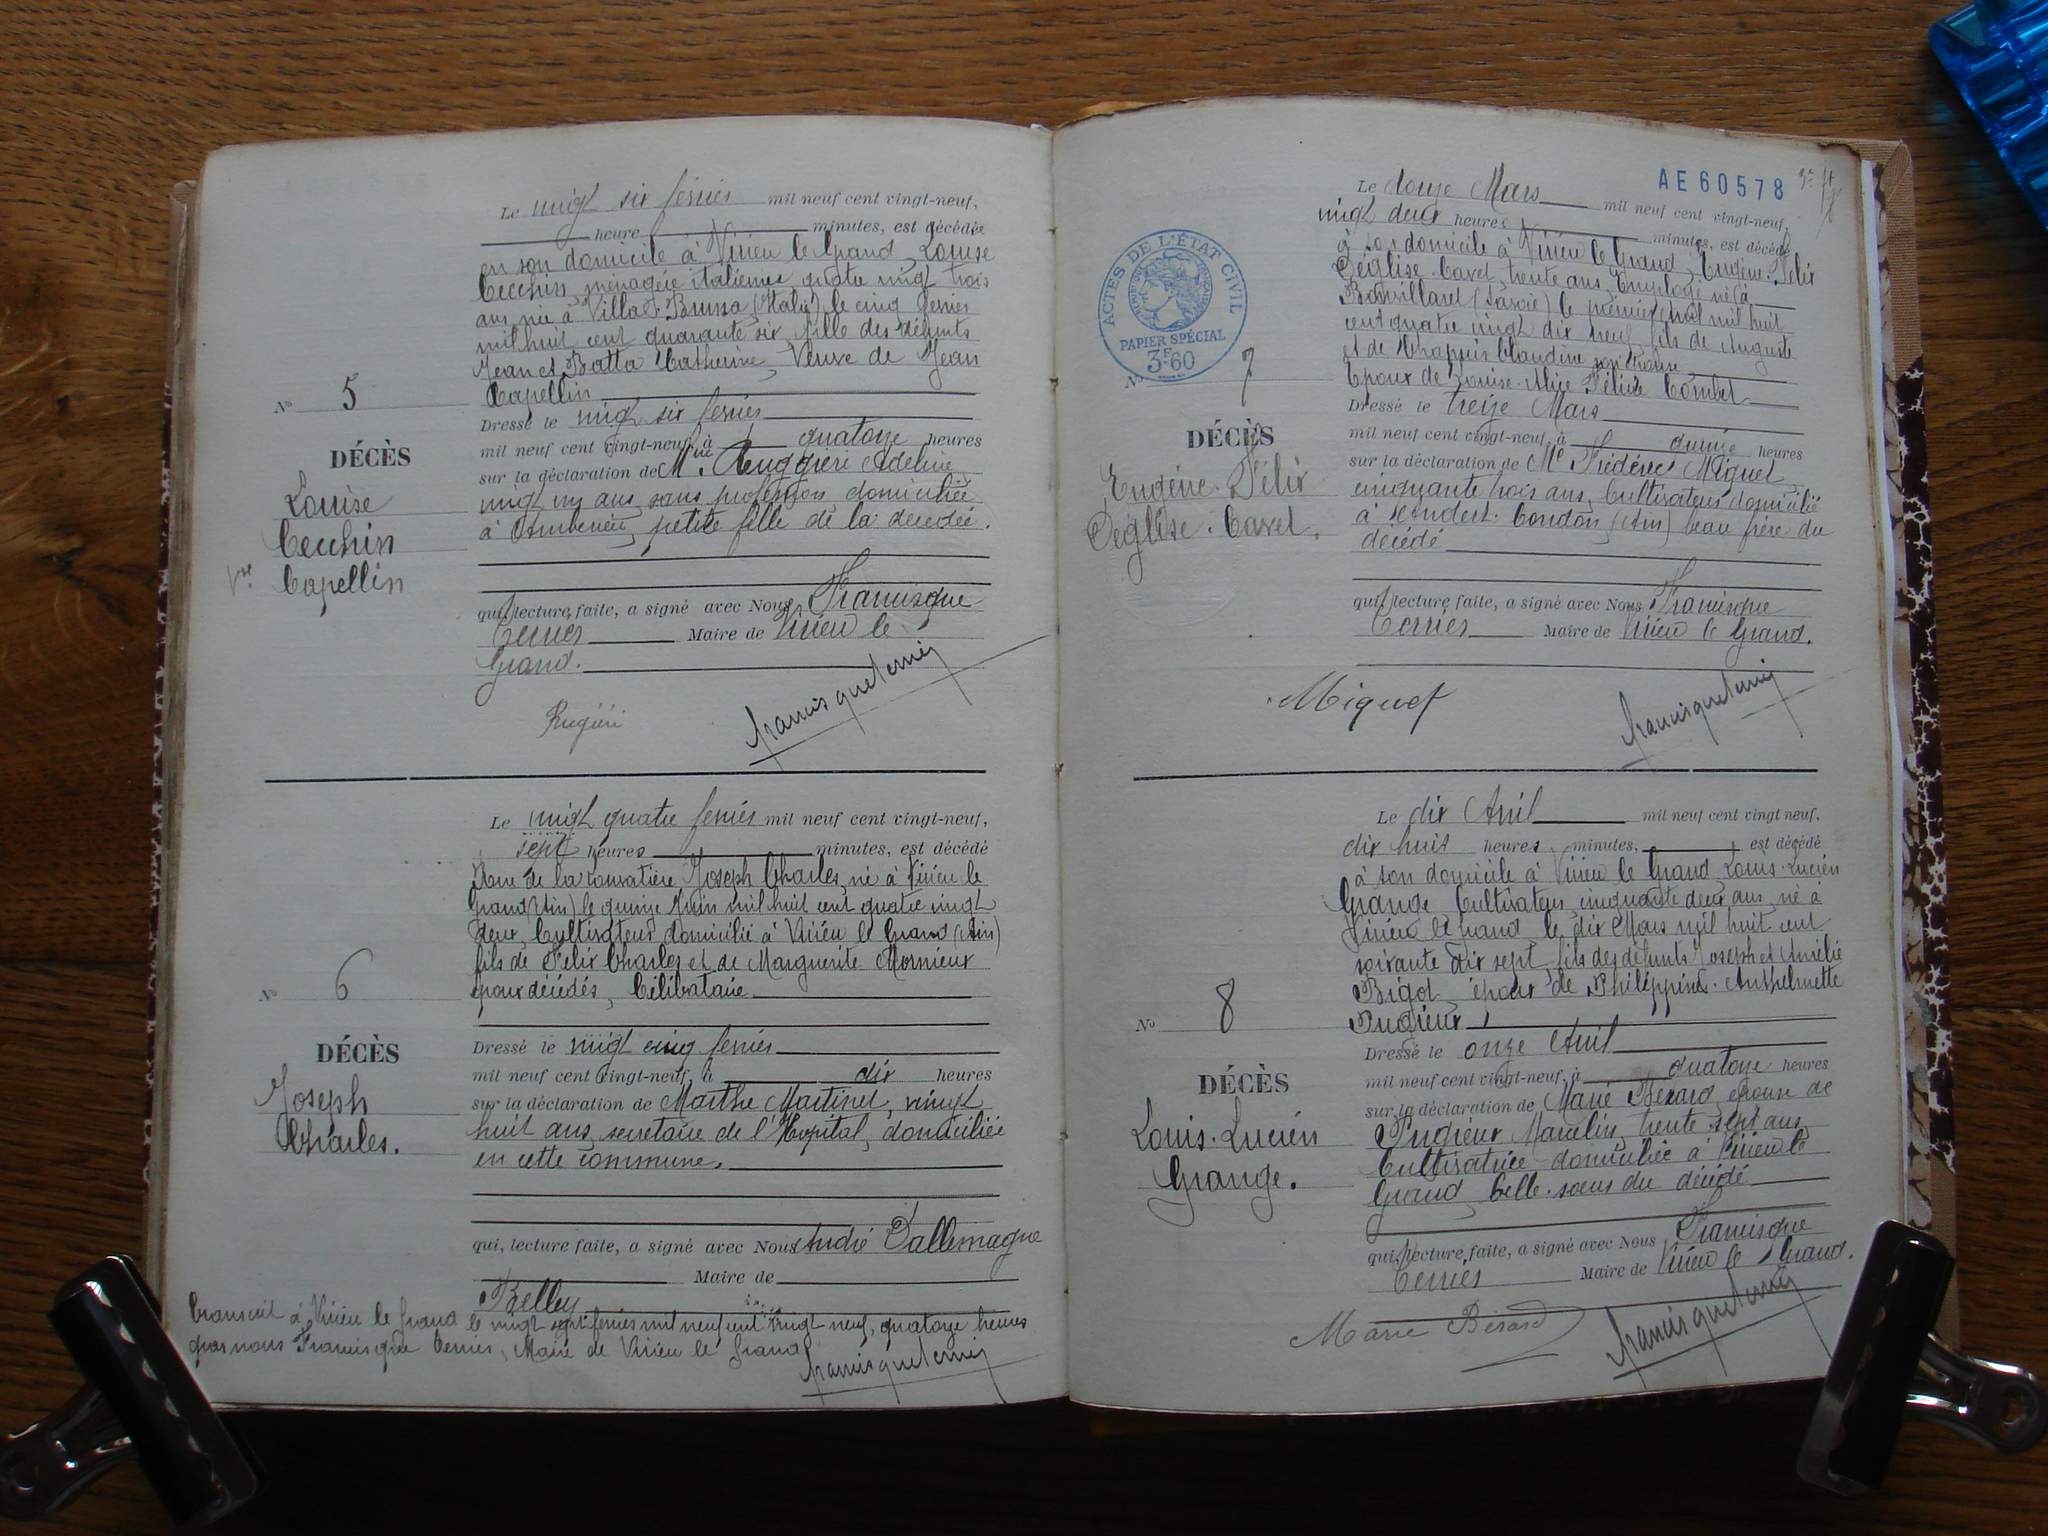 Le vingt six février mil neuf cent vingt-neuf,
heure minutes, est décédée
en son domicile à Virieu le Grand, Louise
Cecchin, ménagère italienne, quatre vingt trois
ans née à Villa (Italie) le cinq février
mil huit cent quarante six, fille des défunts
Jean et Batta Catherine, Veuve de Jean
Capellin
Dressé le vingt six février
mil neuf cent vingt-neuf, à quatorze heures
sur la déclaration de Mme Ruggieri Adeline,
vingt un ans, sans profession domiciliée
à petite fille de la décédée.
qui, lecture faite, a signé avec Nous Francisque
Terrier Maire de Virieu le
Grand.
Nº 5
DÉCÈS
Louise
Cecchin
Vve Capellin
Rugiéri
Francisque Terrier
Le vingt quatre février mil neuf cent vingt-neuf,
sept heures minutes, est décédé
Rue de la Joseph Charles, né à Virieu le
Grand (Ain) le quinze Juin mil huit cent quatre vingt
deux, Cultivateur domicilié à Virieu le Grand (Ain)
fils de Félix Charles et de Marguerite Mornieux
époux décédés, Célibataire.
Dressé le vingt cinq février
mil neuf cent vingt-neuf, à dix heures
sur la déclaration de Marthe Martinet, vingt
huit ans, secrétaire de l'Hôpital, domiciliée
en cette commune.
qui, lecture faite, a signé avec Nous André Dallemagne
Maire de
Belley
Nº 6
DÉCÈS
Joseph
Charles.
Transcrit à Virieu le Grand le vingt sept février mil neuf cent vingt neuf, quatorze heures
par nous Francisque Terrier, Maire de Virieu le Grand
Francisque Terrier
AE 60578
ACTES DE L'ÉTAT CIVIL
PAPIER SPÉCIAL
3F60
Le douze Mars mil neuf cent vingt-neuf,
vingt deux heures minutes, est décédé
à son domicile à Virieu le Grand, Eugène-Félix
Déglise-Cavet, trente ans, Employé né à
Bonvillaret (Savoie) le premier mil huit
cent quatre vingt dix neuf, fils de Auguste
et de Chappuis Claudine
Epoux de Louise-Alice Félicie Combet
Dressé le treize Mars
mil neuf cent vingt-neuf, à quinze heures
sur la déclaration de Mr Frédéric Miguet,
cinquante trois ans, Cultivateur domicilié
à Condon (Ain) beau frère du
décédé
qui, lecture faite, a signé avec Nous Francisque
Terrier Maire de Virieu le Grand.
Nº 7
DÉCÈS
Eugène-Félix
Déglise-Cavet.
Miguet
Francisque Terrier
Le dix Avril mil neuf cent vingt-neuf,
dix huit heures minutes, est décédé
à son domicile à Virieu le Grand Louis-Lucien
Grange Cultivateur, cinquante deux ans, né à
Virieu le Grand le dix Mars mil huit cent
soixante dix sept, fils des défunts Joseph et Amélie
Bigot, époux de Philippine-Anthelmette
Pugieux
Dressé le onze Avril
mil neuf cent vingt-neuf, à quatorze heures
sur la déclaration de Marie Bérard épouse de
Pugieux Marcelin, trente sept ans,
Cultivatrice domiciliée à Virieu le
Grand, belle-sœur du décédé
qui, lecture faite, a signé avec Nous Francisque
Terrier Maire de Virieu le Grand.
Nº 8
DÉCÈS
Louis-Lucien
Grange.
Marie Bérard
Francisque Terrier